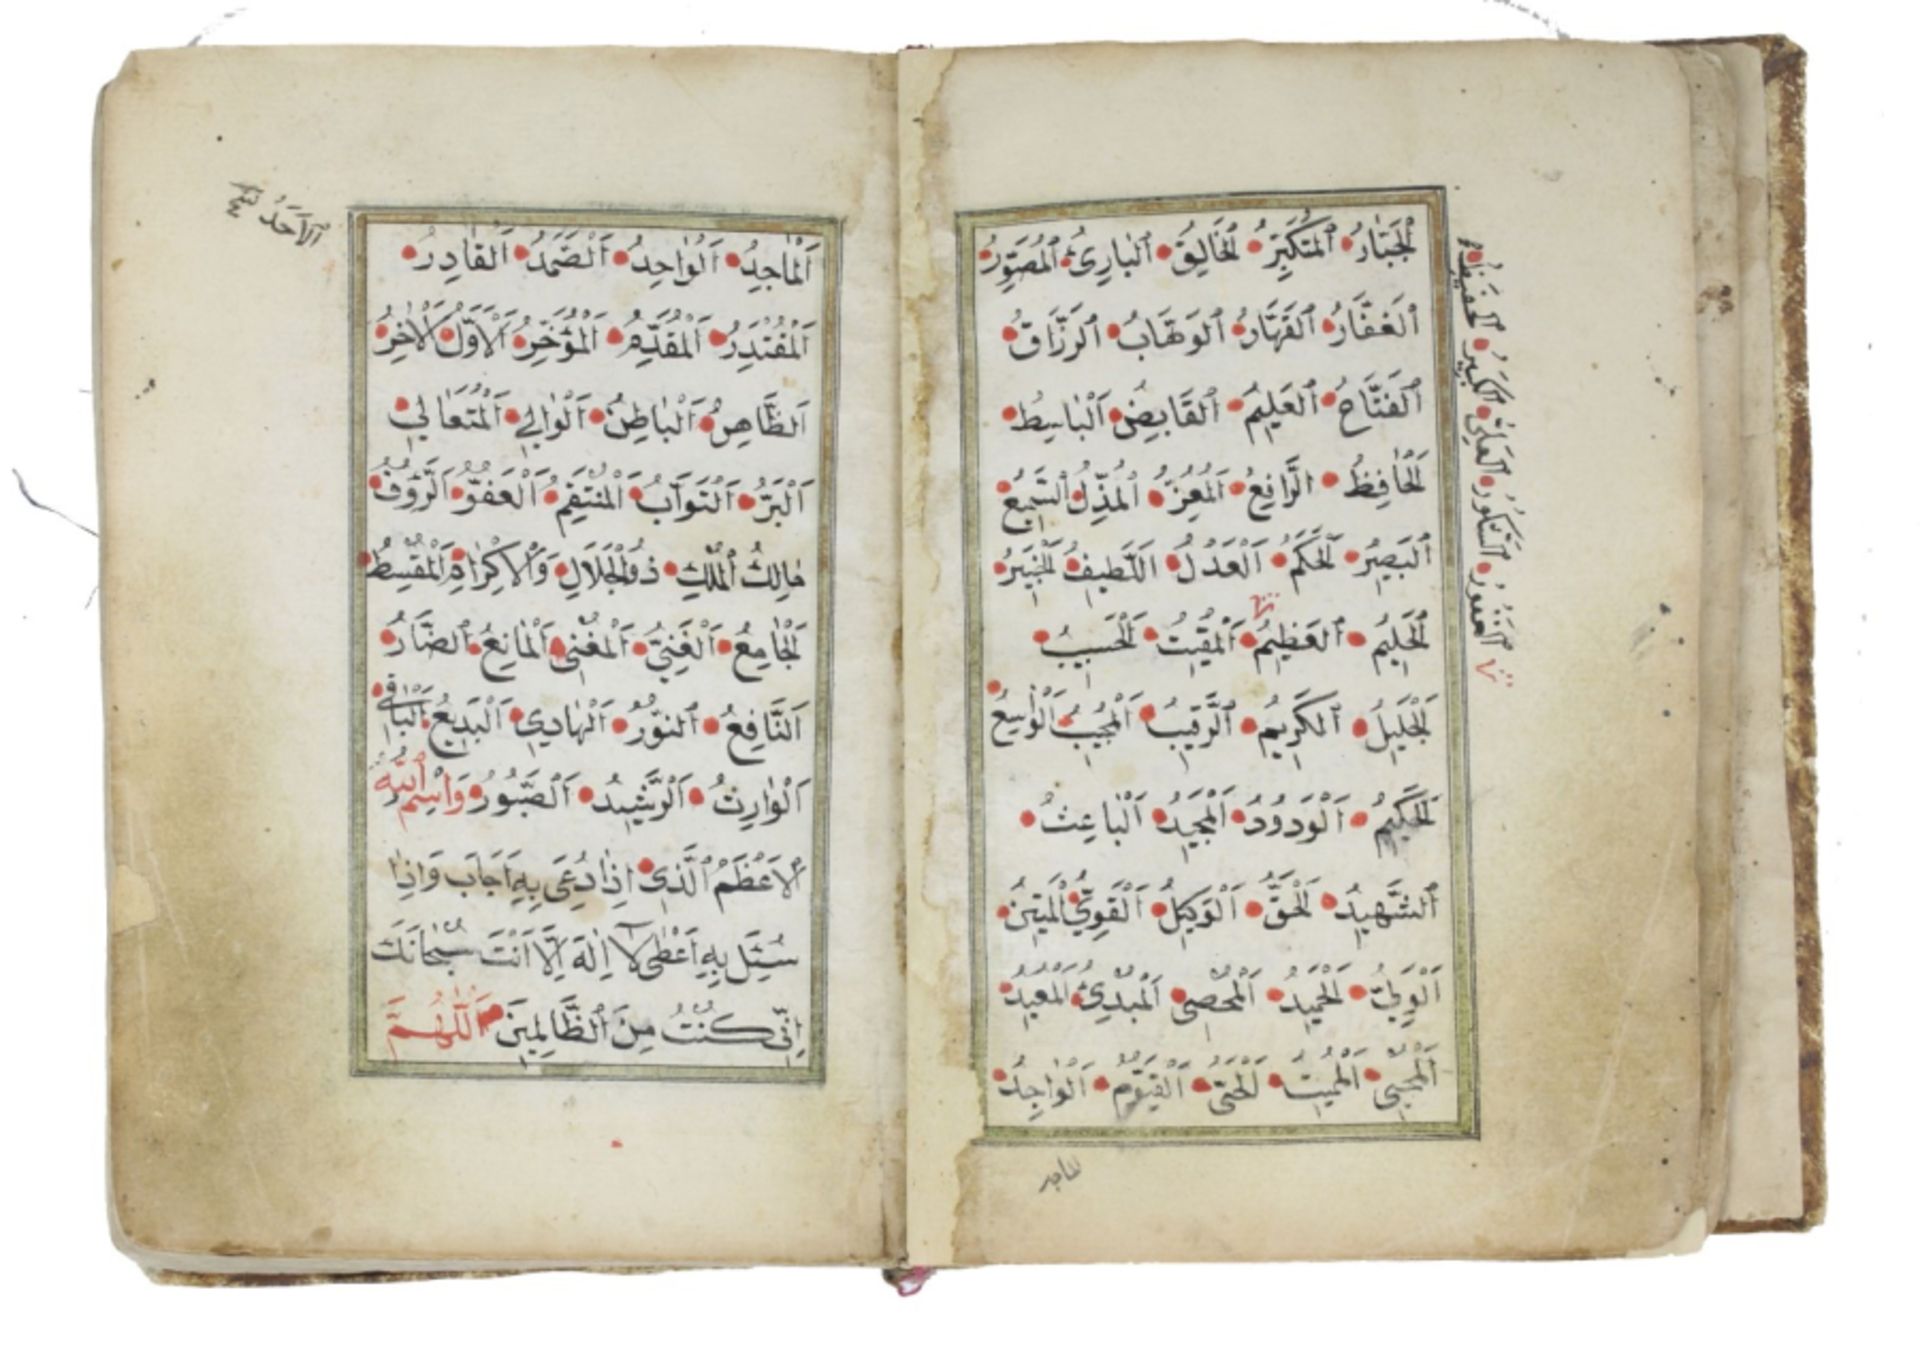 الْجَبَّارُ الْمُتَكَبِّرُ الْخَالِقُ الْبَارِئُ الْمُصَوِّرُ
الْغَفَّارُ الْقَهَّارُ الْوَهَّابُ الرَّزَّاقُ
الْفَتَّاحُ الْعَلِيمُ الْقَابِضُ الْبَاسِطُ
الْحَافِظُ الرَّافِعُ الْمُعِزُّ الْمُذِلُّ السَّمِيعُ
الْبَصِيرُ الْحَكَمُ الْعَدْلُ اللَّطِيفُ الْخَبِيرُ
الْحَلِيمُ الْعَظِيمُ الْمُقِيتُ الْحَسِيبُ
الْجَلِيلُ الْكَرِيمُ الرَّقِيبُ الْمُجِيبُ الْوَاسِعُ
الْحَكِيمُ الْوَدُودُ الْمَجِيدُ الْبَاعِثُ
الشَّهِيدُ الْحَقُّ الْوَكِيلُ الْقَوِيُّ الْمَتِينُ
الْوَلِيُّ الْحَمِيدُ الْمُحْصِي الْمُبْدِئُ الْمُعِيدُ
الْمُحْيِي الْمُمِيتُ الْحَيُّ الْقَيُّومُ الْوَاجِدُ
الماجد
الْغَفُورُ الشَّكُورُ الْعَلِيُّ الْكَبِيرُ الْحَفِيظُ
الْمَاجِدُ الْوَاحِدُ الصَّمَدُ الْقَادِرُ
الْمُقْتَدِرُ الْمُقَدِّمُ الْمُؤَخِّرُ الْاَوَّلُ الْاٰخِرُ
الظَّاهِرُ الْبَاطِنُ الْوَالِي الْمُتَعَالِي
الْبَرُّ التَّوَّابُ الْمُنْتَقِمُ الْعَفُوُّ الرَّؤُفُ
مَالِكُ الْمُلْكِ ذُو الْجَلَالِ وَالْاِكْرَامِ الْمُقْسِطُ
الْجَامِعُ الْغَنِيُّ الْمُغْنِي الْمَانِعُ الضَّارُّ
النَّافِعُ النُّورُ الْهَادِي الْبَدِيعُ الْبَاقِي
الْوَارِثُ الرَّشِيدُ الصَّبُورُ وَاسْمِ اللّٰهِ
الْاَعْظَمُ الَّذِي اِذَا دُعِيَ بِهِ اَجَابَ وَاِذَا
سُئِلَ بِهِ اَعْطٰى لَا اِلٰهَ اِلَّا اَنْتَ سُبْحَانَكَ
اِنِّي كُنْتُ مِنَ الظَّالِمِينَ اَللّٰهُمَّ
الْاَحَدُ